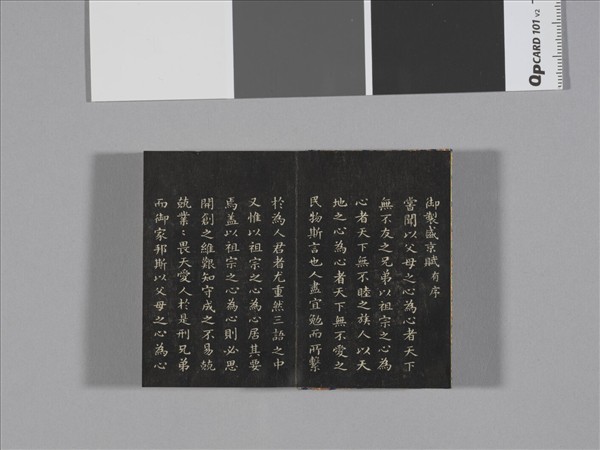 御製盛京賦有序
嘗聞以父母之心為心者天下
無不友之兄弟以祖宗之心為
心者天下無不睦之族人以天
地之心為心者天下無不愛之
民物斯言也人盡宜勉而所繫
於為人君者尤重然三語之中
又惟以祖宗之心為心居其要
焉蓋以祖宗之心為心則必思
開創之維艱知守成之不易兢
兢業〻畏天愛人於是刑兄弟
而御家邦斯以父母之心為心
QPCARD 101 v2